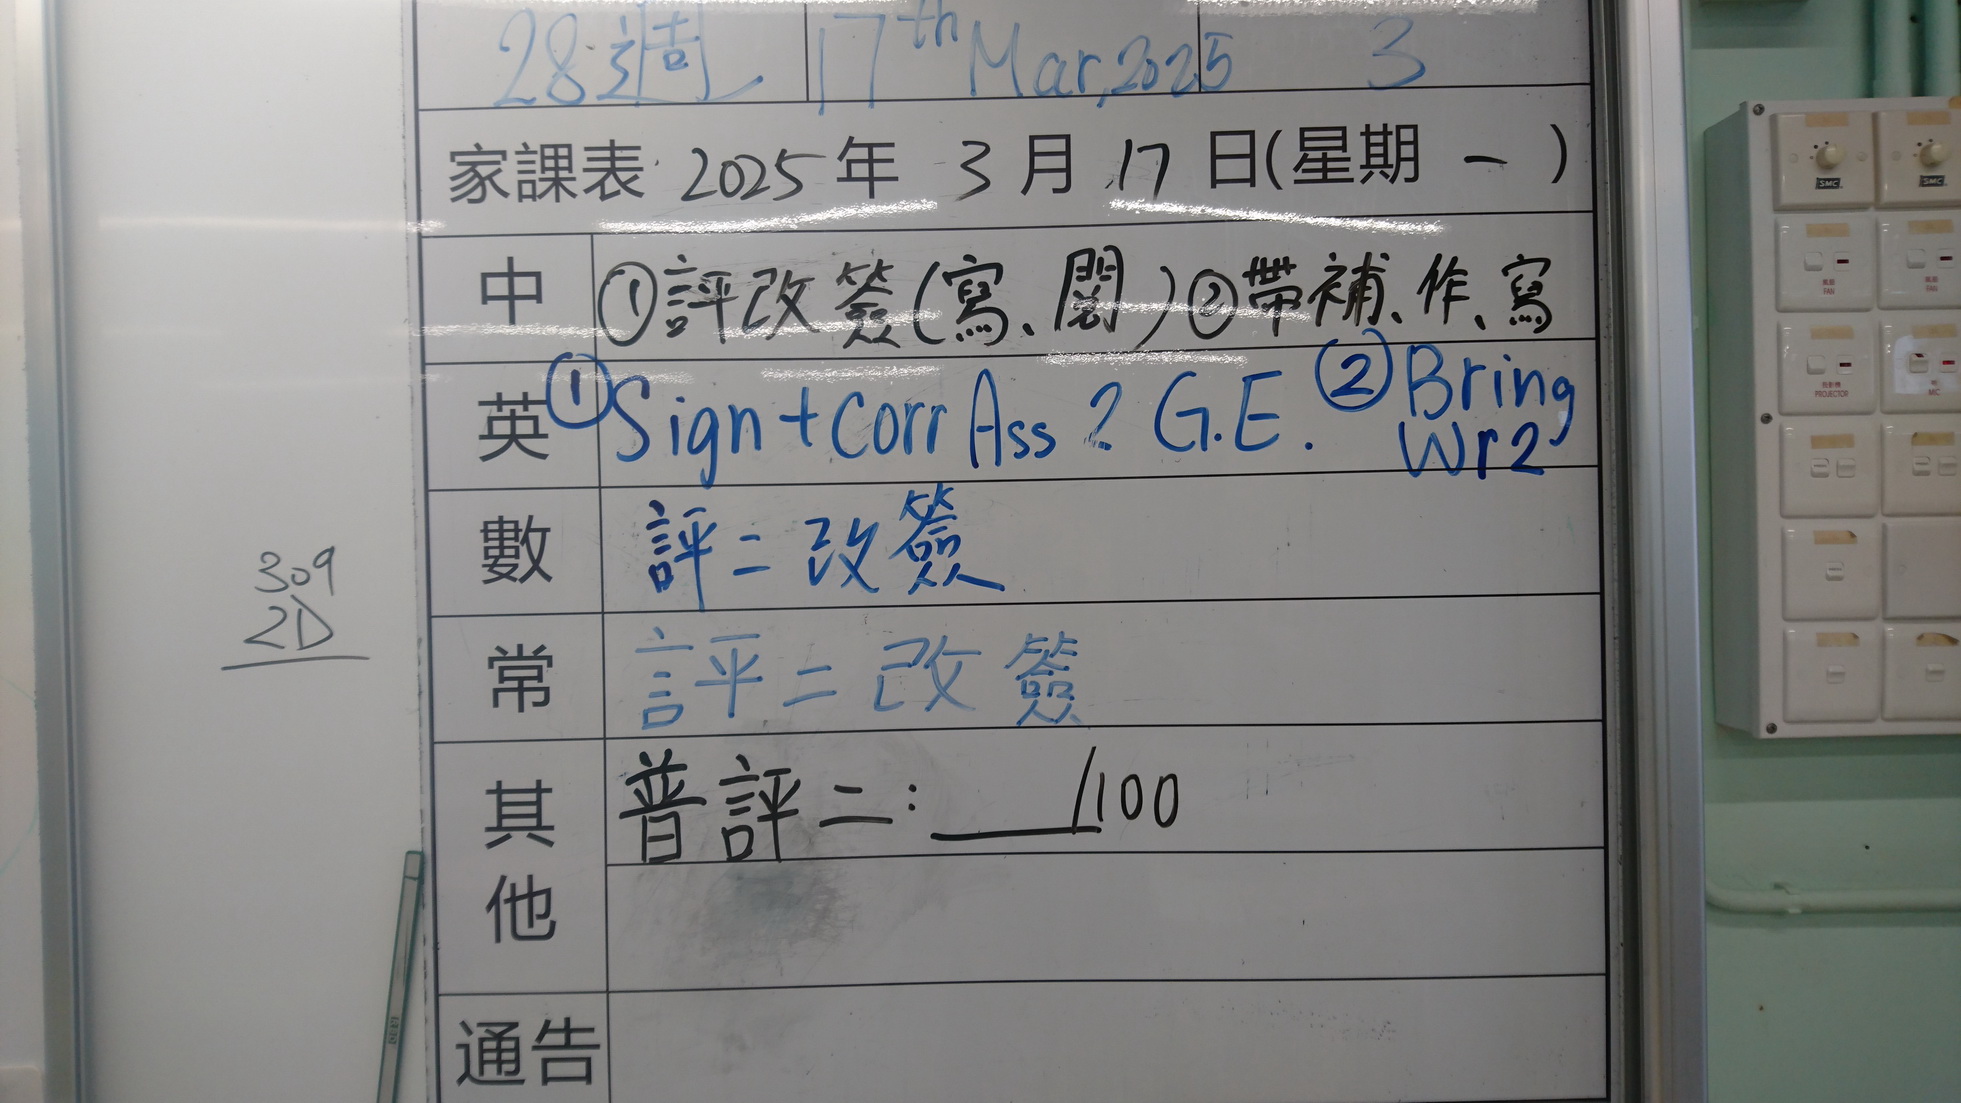 28週 17th Mar,2025 3
家課表 2025年 3月 17日(星期 一 )
中 ①評改簽(寫、閱)②帶補、作、寫
英 ①Sign+Corr Ass 2 G.E. ②Bring
Wr2
數 評二改簽
常 評二改簽
其他 普評二: ___/100
通告
309
2D
SMC SMC
風扇
FAN
風扇
FAN
投影機
PROJECTOR
咪
MIC